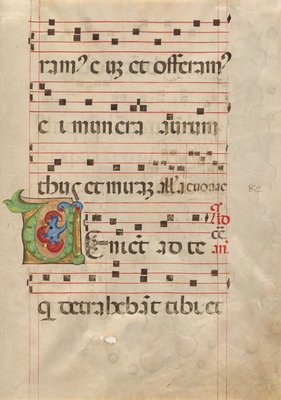 ram⁹ euʒ et offeram⁹
ei munera aurum
thus et mirrā all'a euouae
Ad
Veniēt ad te
qͥ detrahebāt tibi et